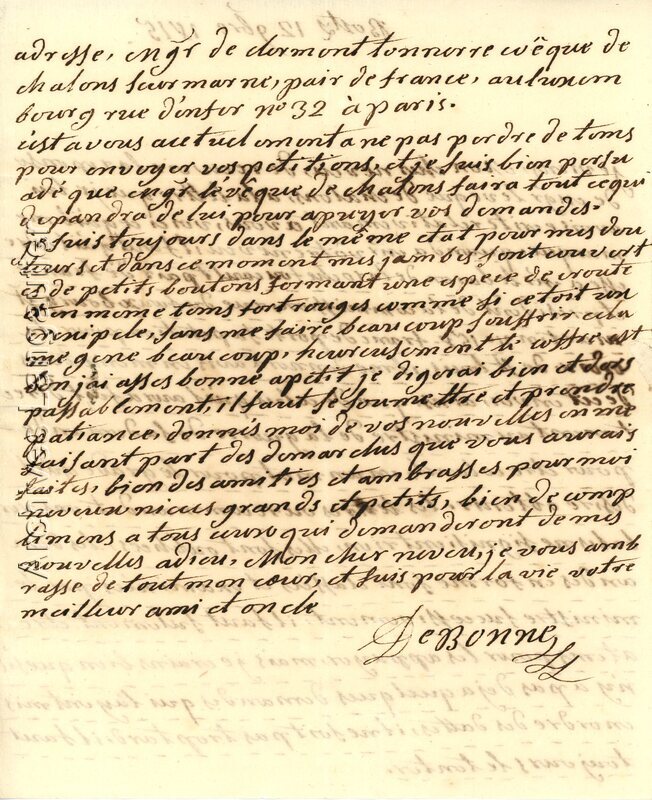 adresse, Mgr de clermont tonnerre evêque de
chalons sur marne, pair de france, au luxem
bourg rue d'enfer no 32 à paris.
c'est a vous actuelement a ne pas perdre de tems
pour envoyer vos petitions, et je suis bien persu
adé que Mgr levêque de chalons faira tout ce qui
dependra de lui pour apuyer vos demandes.
je suis toujours dans le même etat pour mes dou
leurs et dans ce moment mes jambes sont couvert
es de petits boutons formant une espèce de croute
en meme tems fort rouges comme si cetoit un
sans me faire beaucoup souffrir cela
me gene beaucoup, heureusement le coffre est
bon j'ai asses bonne apetit je digerai bien et dors
passablement, il faut se soumettre et prendre
patiance, donnés moi de vos nouvelles en me
faisant part des demarches que vous aurais
faites, bien des amities et ambrasses pour moi
neveux nieces grands et petits, bien de comp
limens a tous ceux qui demanderont de mes
nouvelles adieu, Mon cher neveu, je vous amb
rasse de tout mon cœur, et suis pour la vie votre
meilleur ami et oncle
DeBonne